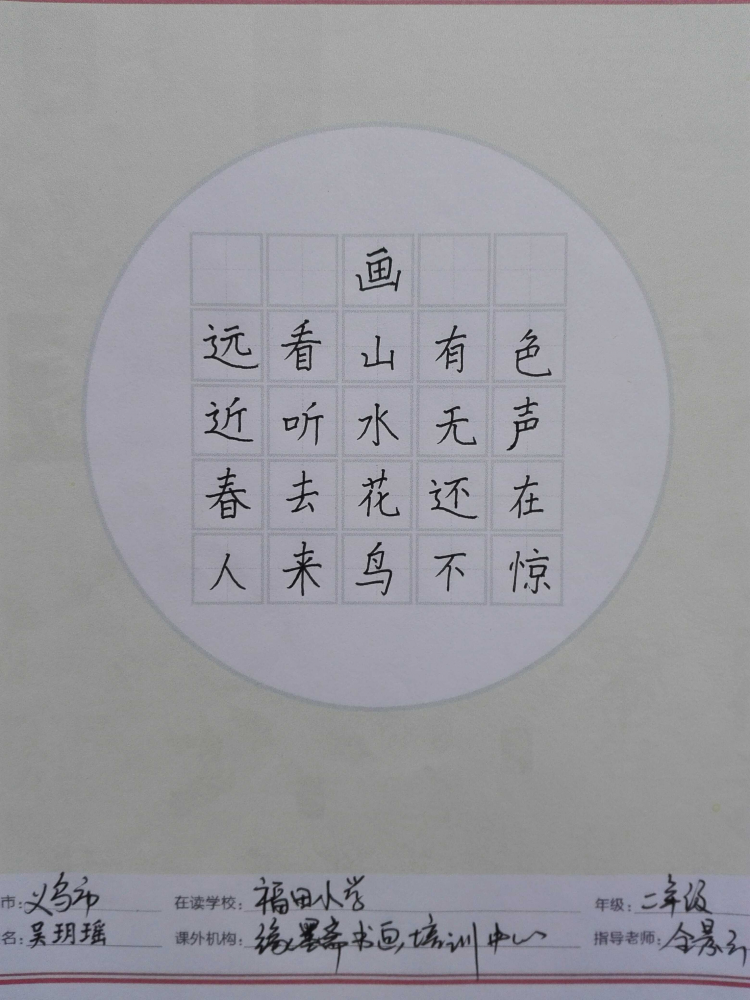 画
远看山有色
近听水无声
春去花还在
人来鸟不惊
市：义乌市 在读学校：福田小学 年级：二年级
名：吴玥瑶 课外机构：缘墨斋书画培训中心 指导老师：